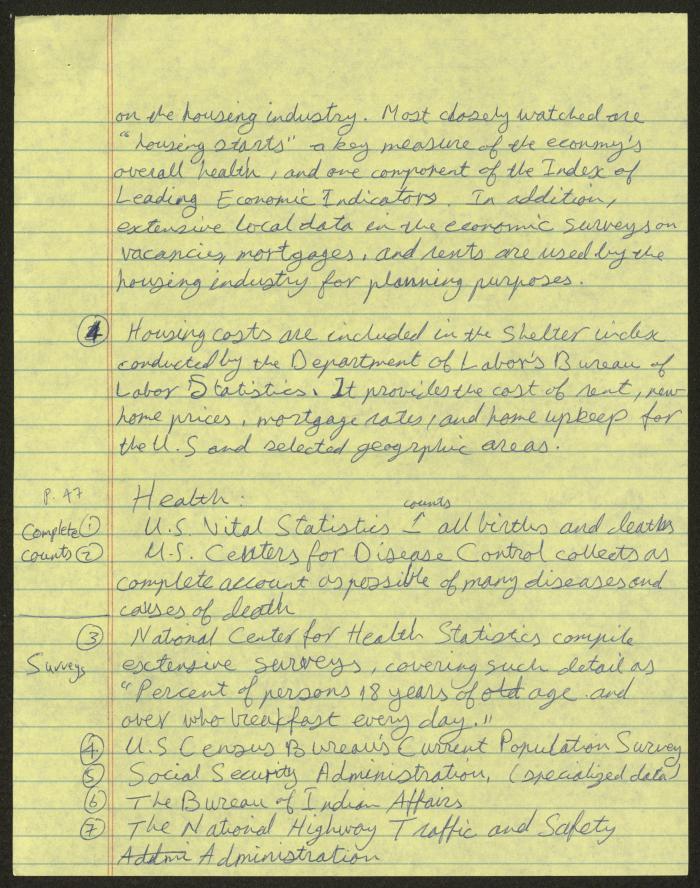 on the housing industry. Most closely watched are
"housing starts" a key measure of the econmy's
overall health, and one component of the Index of
Leading Economic Indicators. In addition,
extensive local data in the economic surveys on
vacancies, mortgages, and rents are used by the
housing industry for planning purposes.
4 Housing costs are included in the Shelter index
conducted by the Department of Labor's Bureau of
Labor Statistics. It provides the cost of rent, new
home prices, mortgage rates, and home upkeep for
the U.S and selected geogrphic areas.
P. 47 Health:
counts
Complete 1 U.S. Vital Statistics ↑ all births and deaths
counts 2 U.S. Centers for Disease Control collects as
complete account as possible of many diseases and
causes of death
3 National Center for Health Statistics compile
Surveys extensive surveys, covering such detail as
"Percent of persons 18 years of old age and
over who breakfast every day."
4 U.S Census Bureau's Current Population Survey
5 Social Security Administration, (specialized data)
6 The Bureau of Indian Affairs
7 The National Highway Traffic and Safety
Addmi Administration